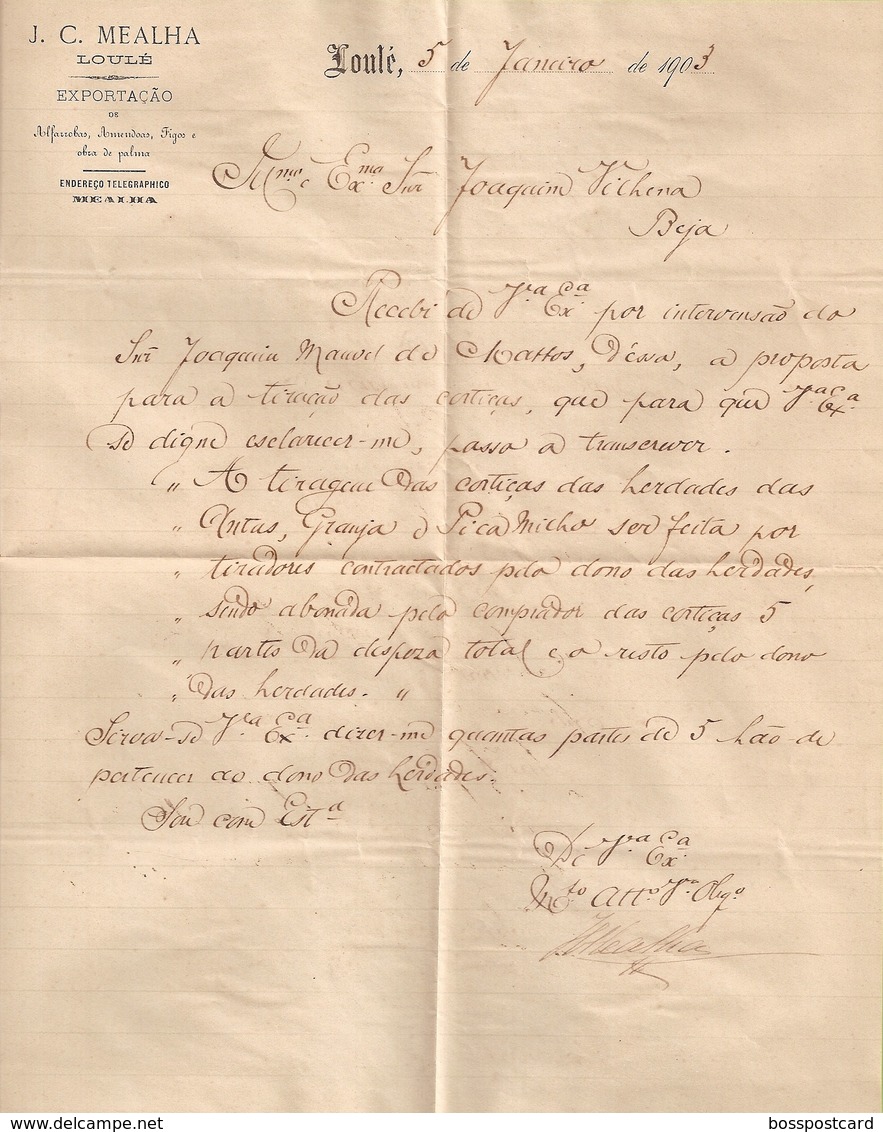 J. C. MEALHA
LOULÉ
EXPORTAÇÃO
DE
Alfarrobas, Amendoas, Figos e
obra de palma
ENDEREÇO TELEGRAPHICO
MEALHA
Loulé, 5 de Janeiro de 1903
Illmo e Exmo. Snr Joaquim Vilhena
Beja
Recebi de Va Exca. por intervensão do
Snr Joaquim Manoel de Mattos, D'éssa, a proposta
para a tiração das cortiças, que para que Va Exca.
se digne esclarecer-me, passo a transcrever.
" A tiragem das cortiças das herdades das
" Antas, Granja e Pica Milho ser feita por
" tiradores contractados pelo dono das herdades,
" sendo abonada pelo comprador das cortiças 5
" partes da despeza total e o resto pelo dono
" das herdades. "
Sirva-se Va Exca. dizer-me quantas partes de 5 hão de
pertencer ao dono das herdades.
Sou com Esta
De Va Exca.
Mto Atto Vor Obgo
JCMealha
www.delcampe.net
bosspostcard